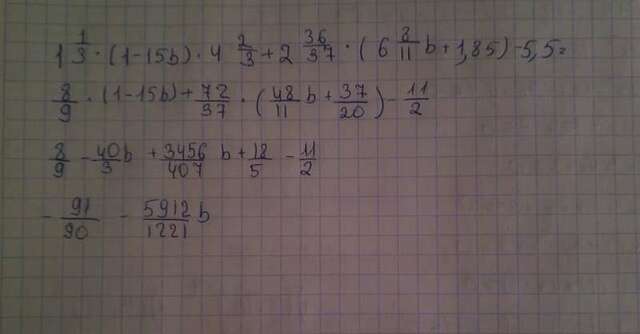 1 1/3 · (1-15b) · 4 2/3 + 2 36/37 · (6 8/11 b + 1,85) - 5,5 =
8/9 · (1-15b) + 72/37 · (48/11 b + 37/20) - 11/2
8/9 - 40/3 b + 3456/407 b + 18/5 - 11/2
- 91/90 - 5912/1221 b